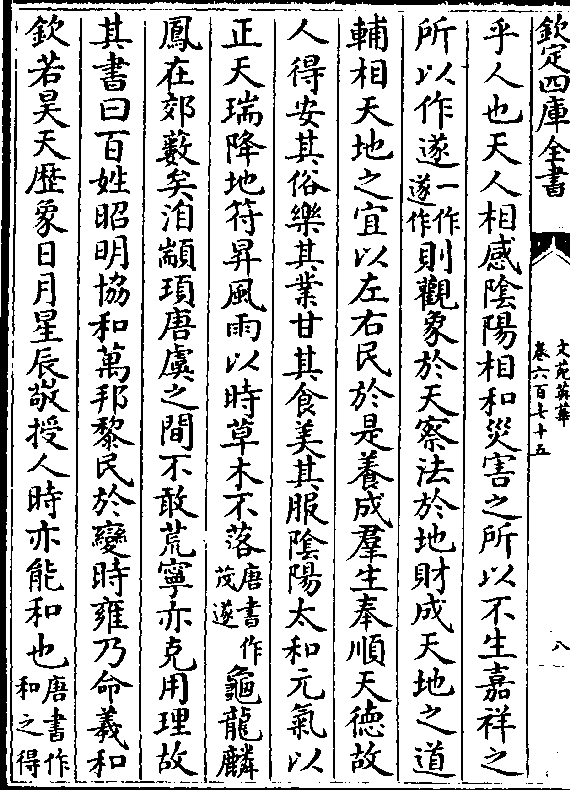 欽定四庫全書
文苑英華
卷六百七十五
八
乎人也天人相感陰陽相和災害之所以不生嘉祥之
所以作遂一作遂作則觀象於天察法於地財成天地之道
輔相天地之宜以左右民於是養成羣生奉順天德故
人得安其俗樂其業甘其食美其服陰陽太和元氣以
正天瑞降地符昇風雨以時草木不落唐書作茂遂龜龍麟
鳳在郊藪矣洎顓頊唐虞之間不敢荒寧亦克用理故
其書曰百姓昭明協和萬邦黎民於變時雍乃命羲和
欽若昊天歷象日月星辰敬授人時亦能和也唐書作和之得